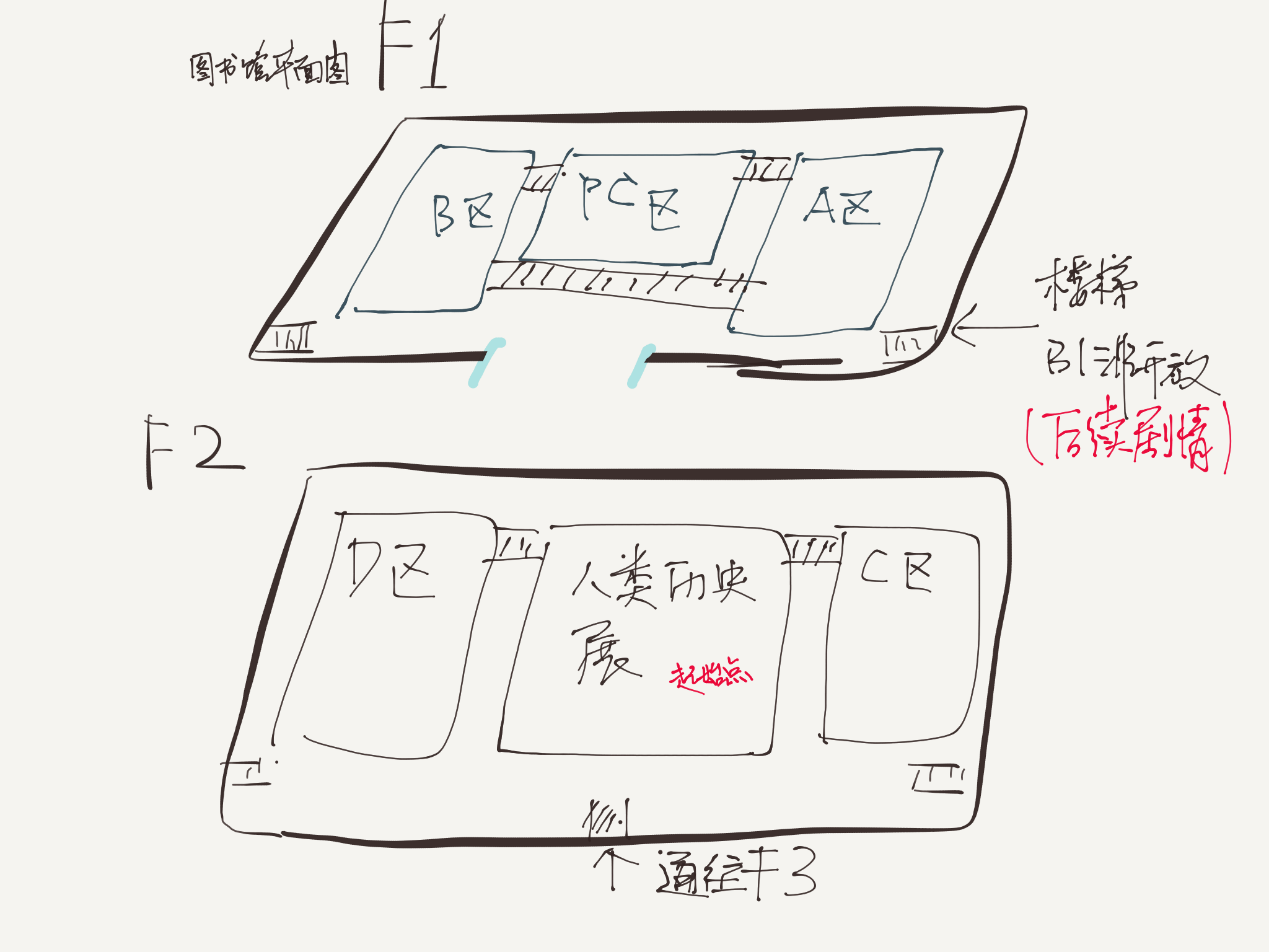 图书馆平面图 F1
B区 PC区 A区
楼梯
B1非开放
(后续剧情)
F2
D区 人类历史 C区
展 起始点
通往F3